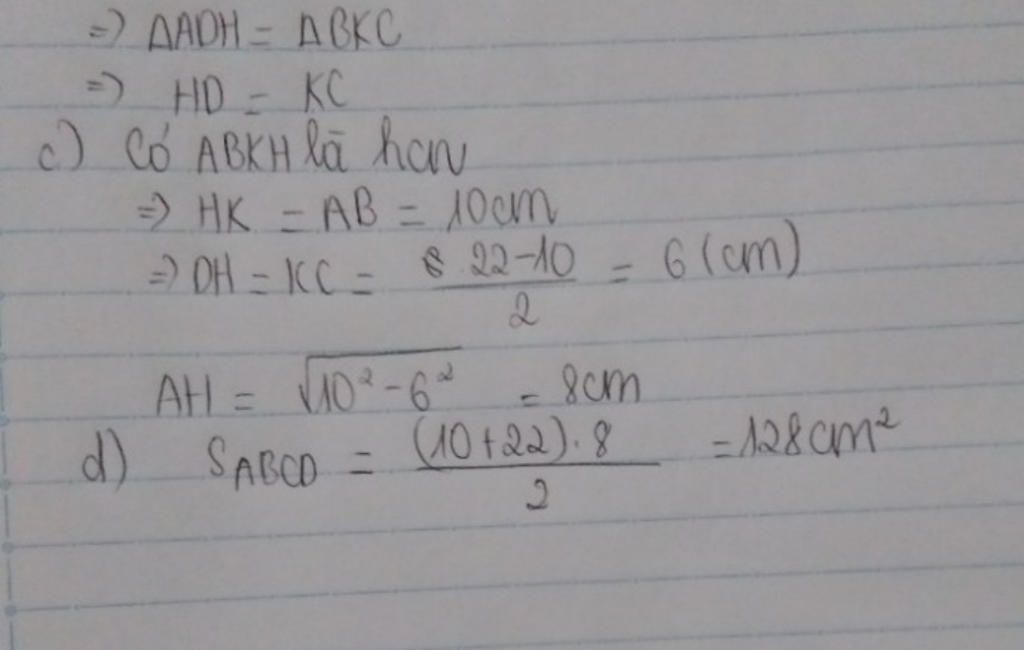 => ΔADH = ΔBKC
=> HD = KC
c) Có ABKH là hcn
=> HK = AB = 10cm
=> DH = KC = (22-10)/2 = 6 (cm)
AH = √(10² - 6²) = 8cm
d) S_ABCD = ((10+22).8)/2 = 128cm²